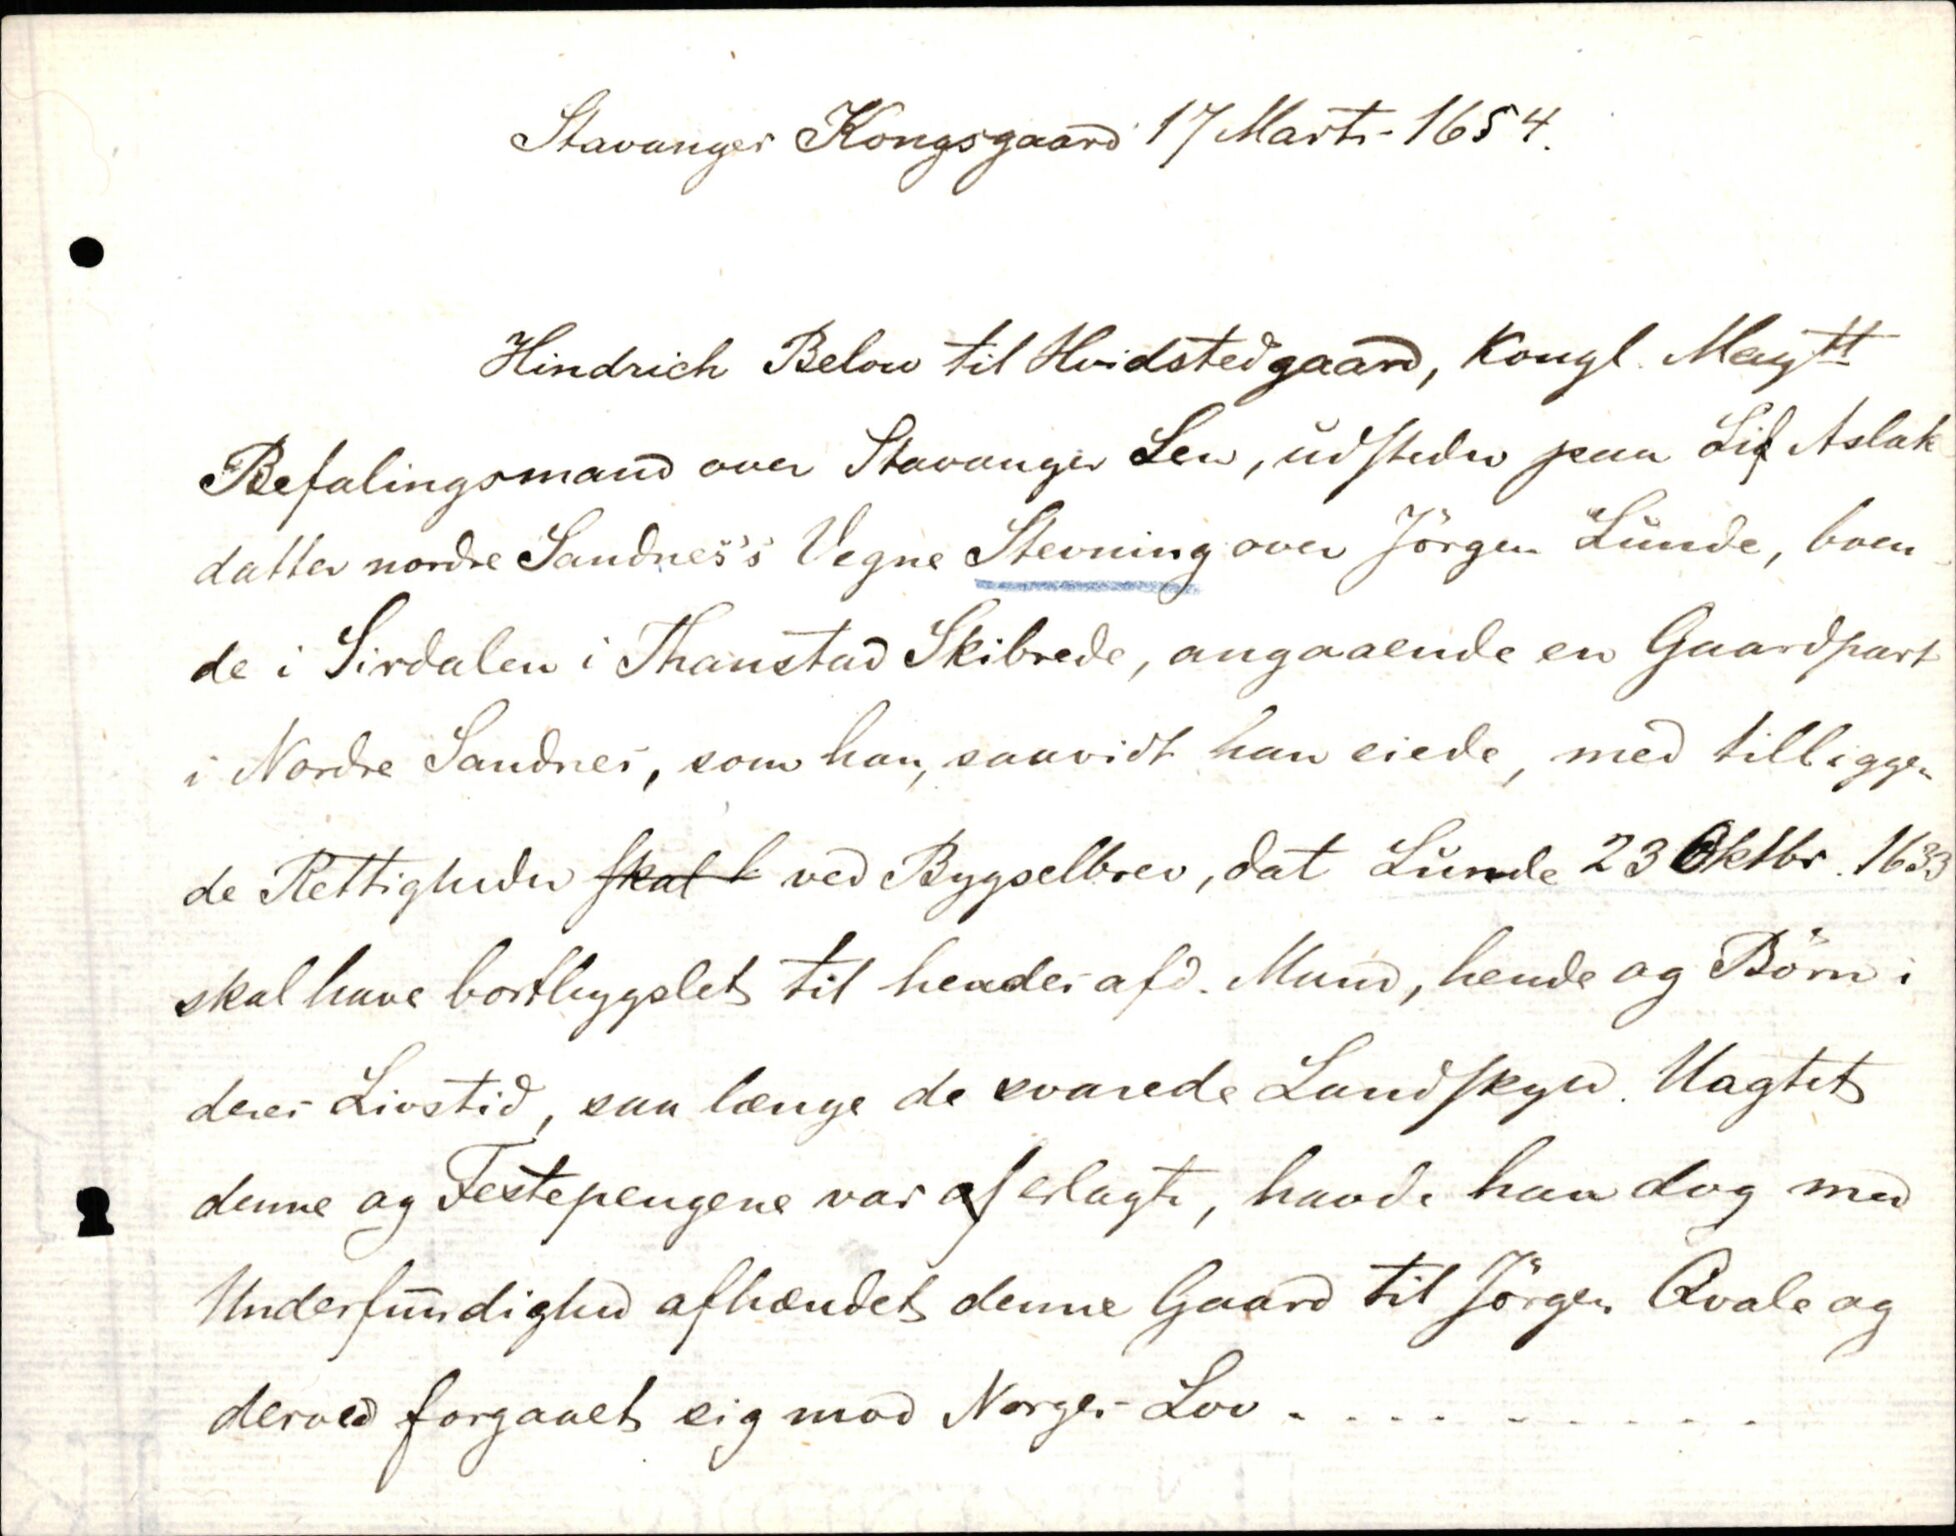 Stavanger Kongsgaard 17 Marts 1654.
Hindrich Below til Hvidstedgaard, Kongl. Maytt
Befalingsmand over Stavanger Len, udsteder paa Lif Aslak
datter nordre Sandnes's Vegne Stevning over Jörgen Lunde, boen
de i Sirdalen i Thanstad Skibrede, angaaende en Gaardpart
i Nordre Sandnes, som han, saavidt han eiede, med tilliggen
de Rettigheder skal h ved Bygselbrev, dat Lunde 23 Oktbr. 1633
skal have bortbygslet til hendes afd. Mand, hende og Börn i
deres Livstid, saa længe de svarede Landskyld. Uagtet
denne og Festepengene var erlagte, havde han dog med
Underfundighed afhændet denne Gaard til Jörgen Qvale og
derved forgaaet sig mod Norges Lov . . . . . . . . . .